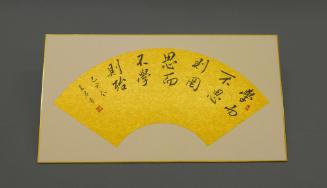 學而
不思
則罔
思而
不學
則殆